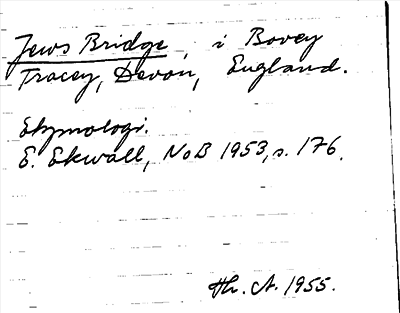 Jews Bridge, i Bovey
Tracey, Devon, England.
Etymologi.
E. Ekwall, NoB 1953, s. 176.
Hh. A. 1955.